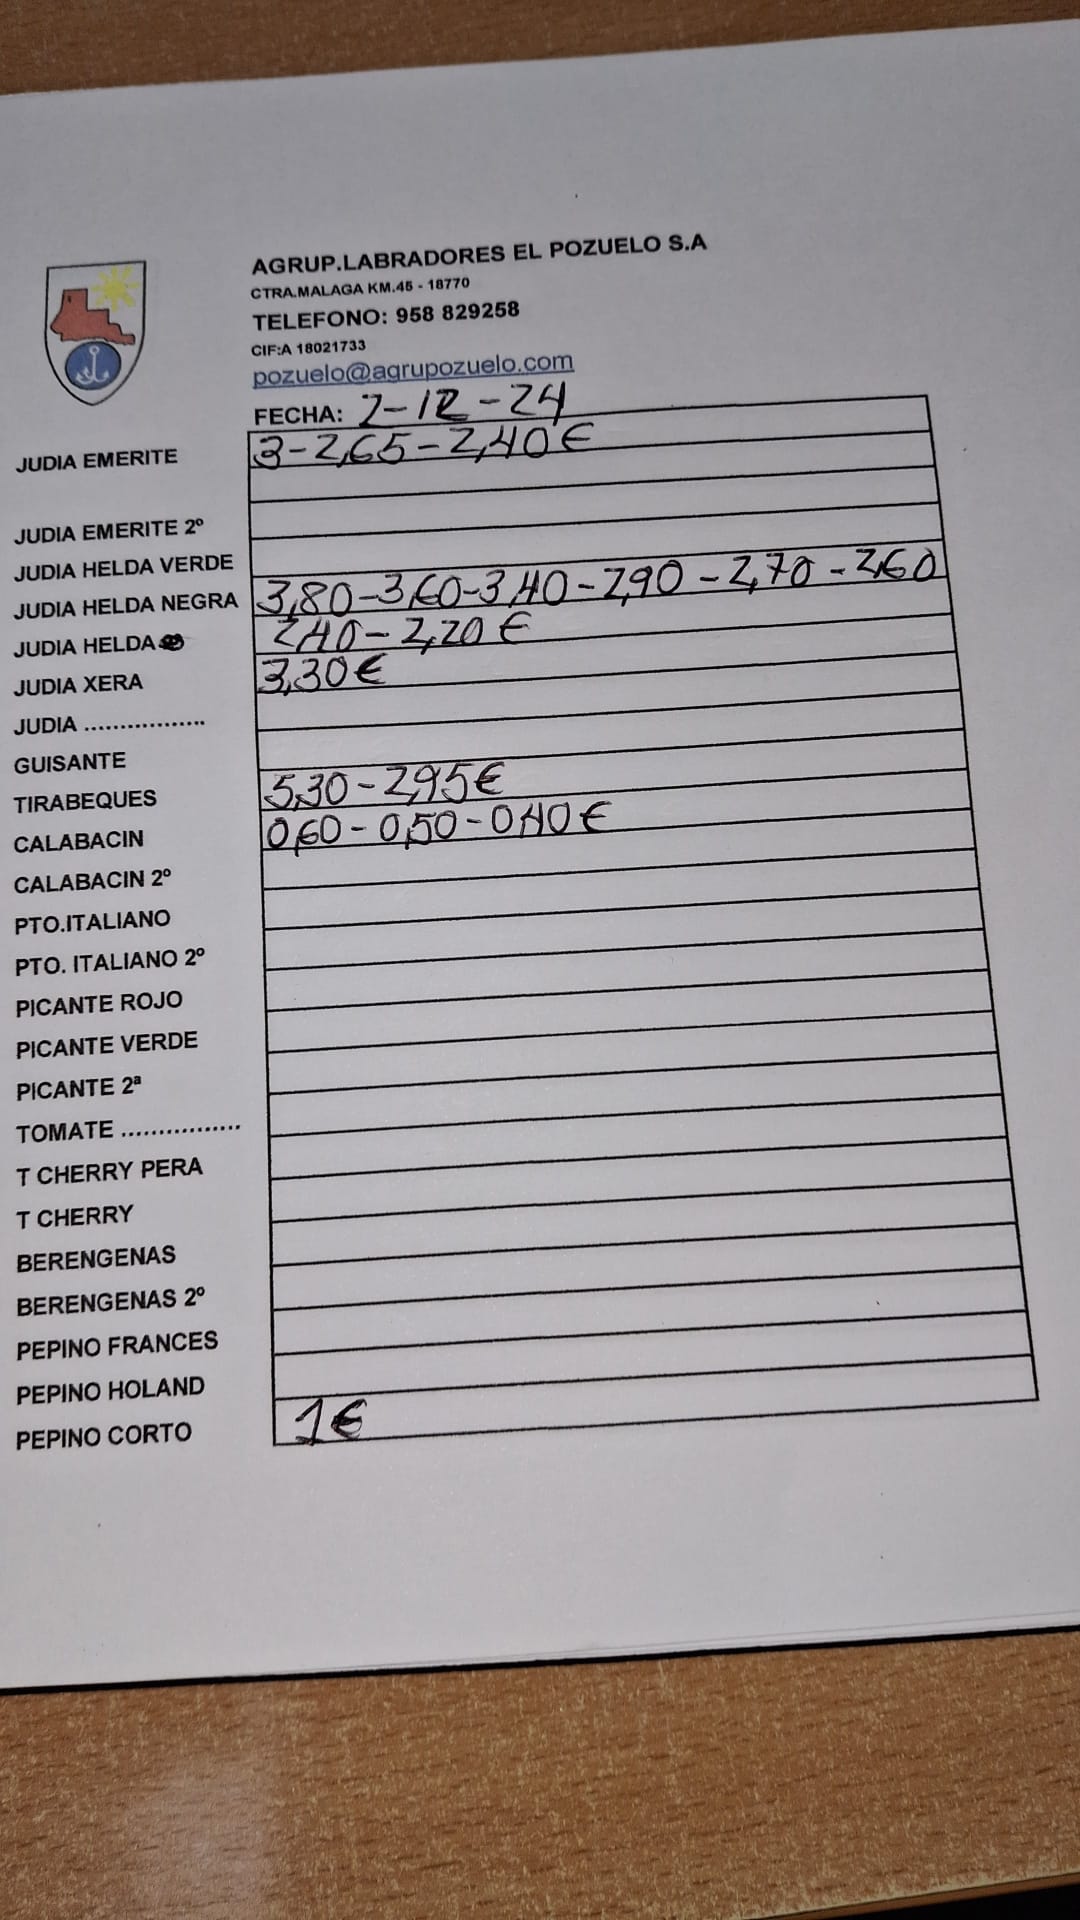 AGRUP.LABRADORES EL POZUELO S.A
CTRA.MALAGA KM.45 - 18770
TELEFONO: 958 829258
CIF:A 18021733
pozuelo@agrupozuelo.com
FECHA: 2-12-24
JUDIA EMERITE 3-2,65-2,40€
JUDIA EMERITE 2º
JUDIA HELDA VERDE
JUDIA HELDA NEGRA 3,80-3,60-3,40-2,90-2,70-2,60
JUDIA HELDA 2,40-2,20€
JUDIA XERA 3,30€
JUDIA .................
GUISANTE
TIRABEQUES 5,30-2,95€
CALABACIN 0,60-0,50-0,40€
CALABACIN 2º
PTO.ITALIANO
PTO. ITALIANO 2º
PICANTE ROJO
PICANTE VERDE
PICANTE 2ª
TOMATE ................
T CHERRY PERA
T CHERRY
BERENGENAS
BERENGENAS 2º
PEPINO FRANCES
PEPINO HOLAND
PEPINO CORTO 1€